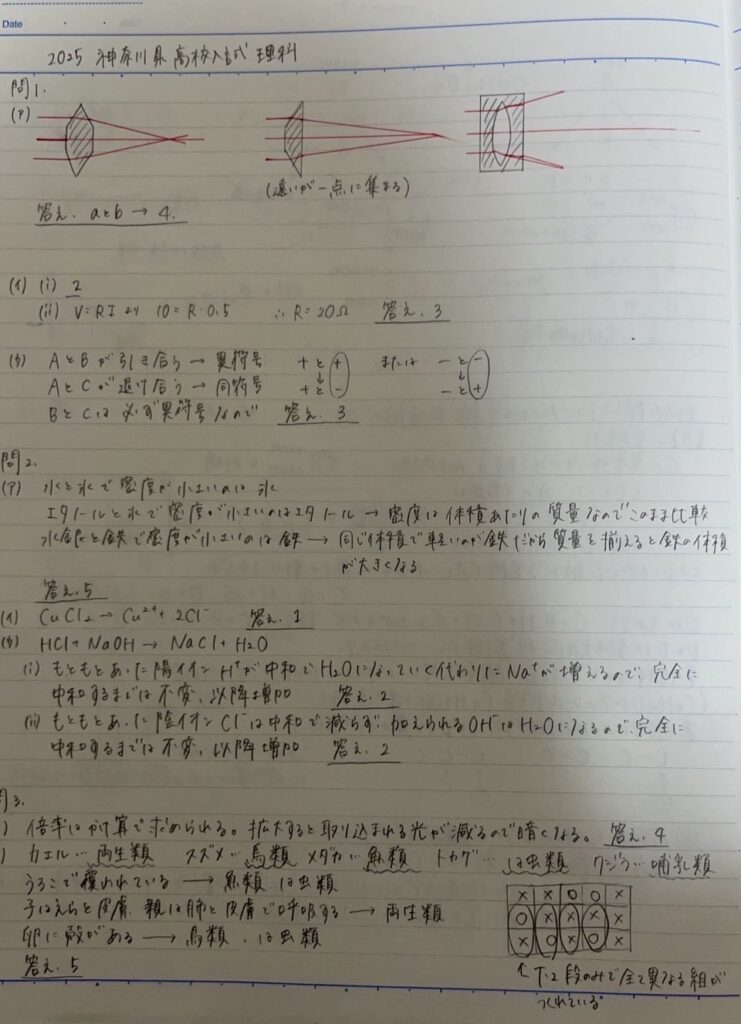 Date
2025 神奈川県 高校入試 理科
問1.
(ア)
(遠いが一点に集まる)
答え. aとb → 4.
(イ) (i) 2
(ii) V=RIより 10=R・0.5 ∴R=20Ω 答え. 3
(ウ) AとBが引き合う → 異符号 +と+ または −と−
AとCが退け合う → 同符号 +と− −と+
BとCは必ず異符号なので 答え. 3
問2.
(ア) 水と氷で密度が小さいのは氷
エタノールと水で密度が小さいのはエタノール → 密度は体積あたりの質量なのでこのまま比較
水銀と鉄で密度が小さいのは鉄 → 同じ体積で軽いのが鉄だから質量を揃えると鉄の体積
が大きくなる
答え. 5
(イ) CuCl2 → Cu²⁺ + 2Cl⁻ 答え. 1
(ウ) HCl + NaOH → NaCl + H2O
(i) もともとあった陽イオンH⁺が中和でH2Oになっていく代わりにNa⁺が増えるので、完全に
中和するまでは不変、以降増加 答え. 2
(ii) もともとあった陰イオンCl⁻は中和で減らず、加えられるOH⁻はH2Oになるので、完全に
中和するまでは不変、以降増加 答え. 2
問3.
) 倍率はかけ算で求められる。拡大すると取り込まれる光が減るので暗くなる。 答え. 4
) カエル… 両生類 スズメ… 鳥類 メダカ… 魚類 トカゲ… は虫類 クジラ… 哺乳類
うろこで覆われている → 魚類 は虫類
子はえらと皮膚、親は肺と皮膚で呼吸する → 両生類
卵に殻がある → 鳥類、は虫類
答え. 5
× × ○ ○ ×
○ × × × ×
× ○ × ○ ×
↑ 下2段のみで全て異なる組が
つくれている